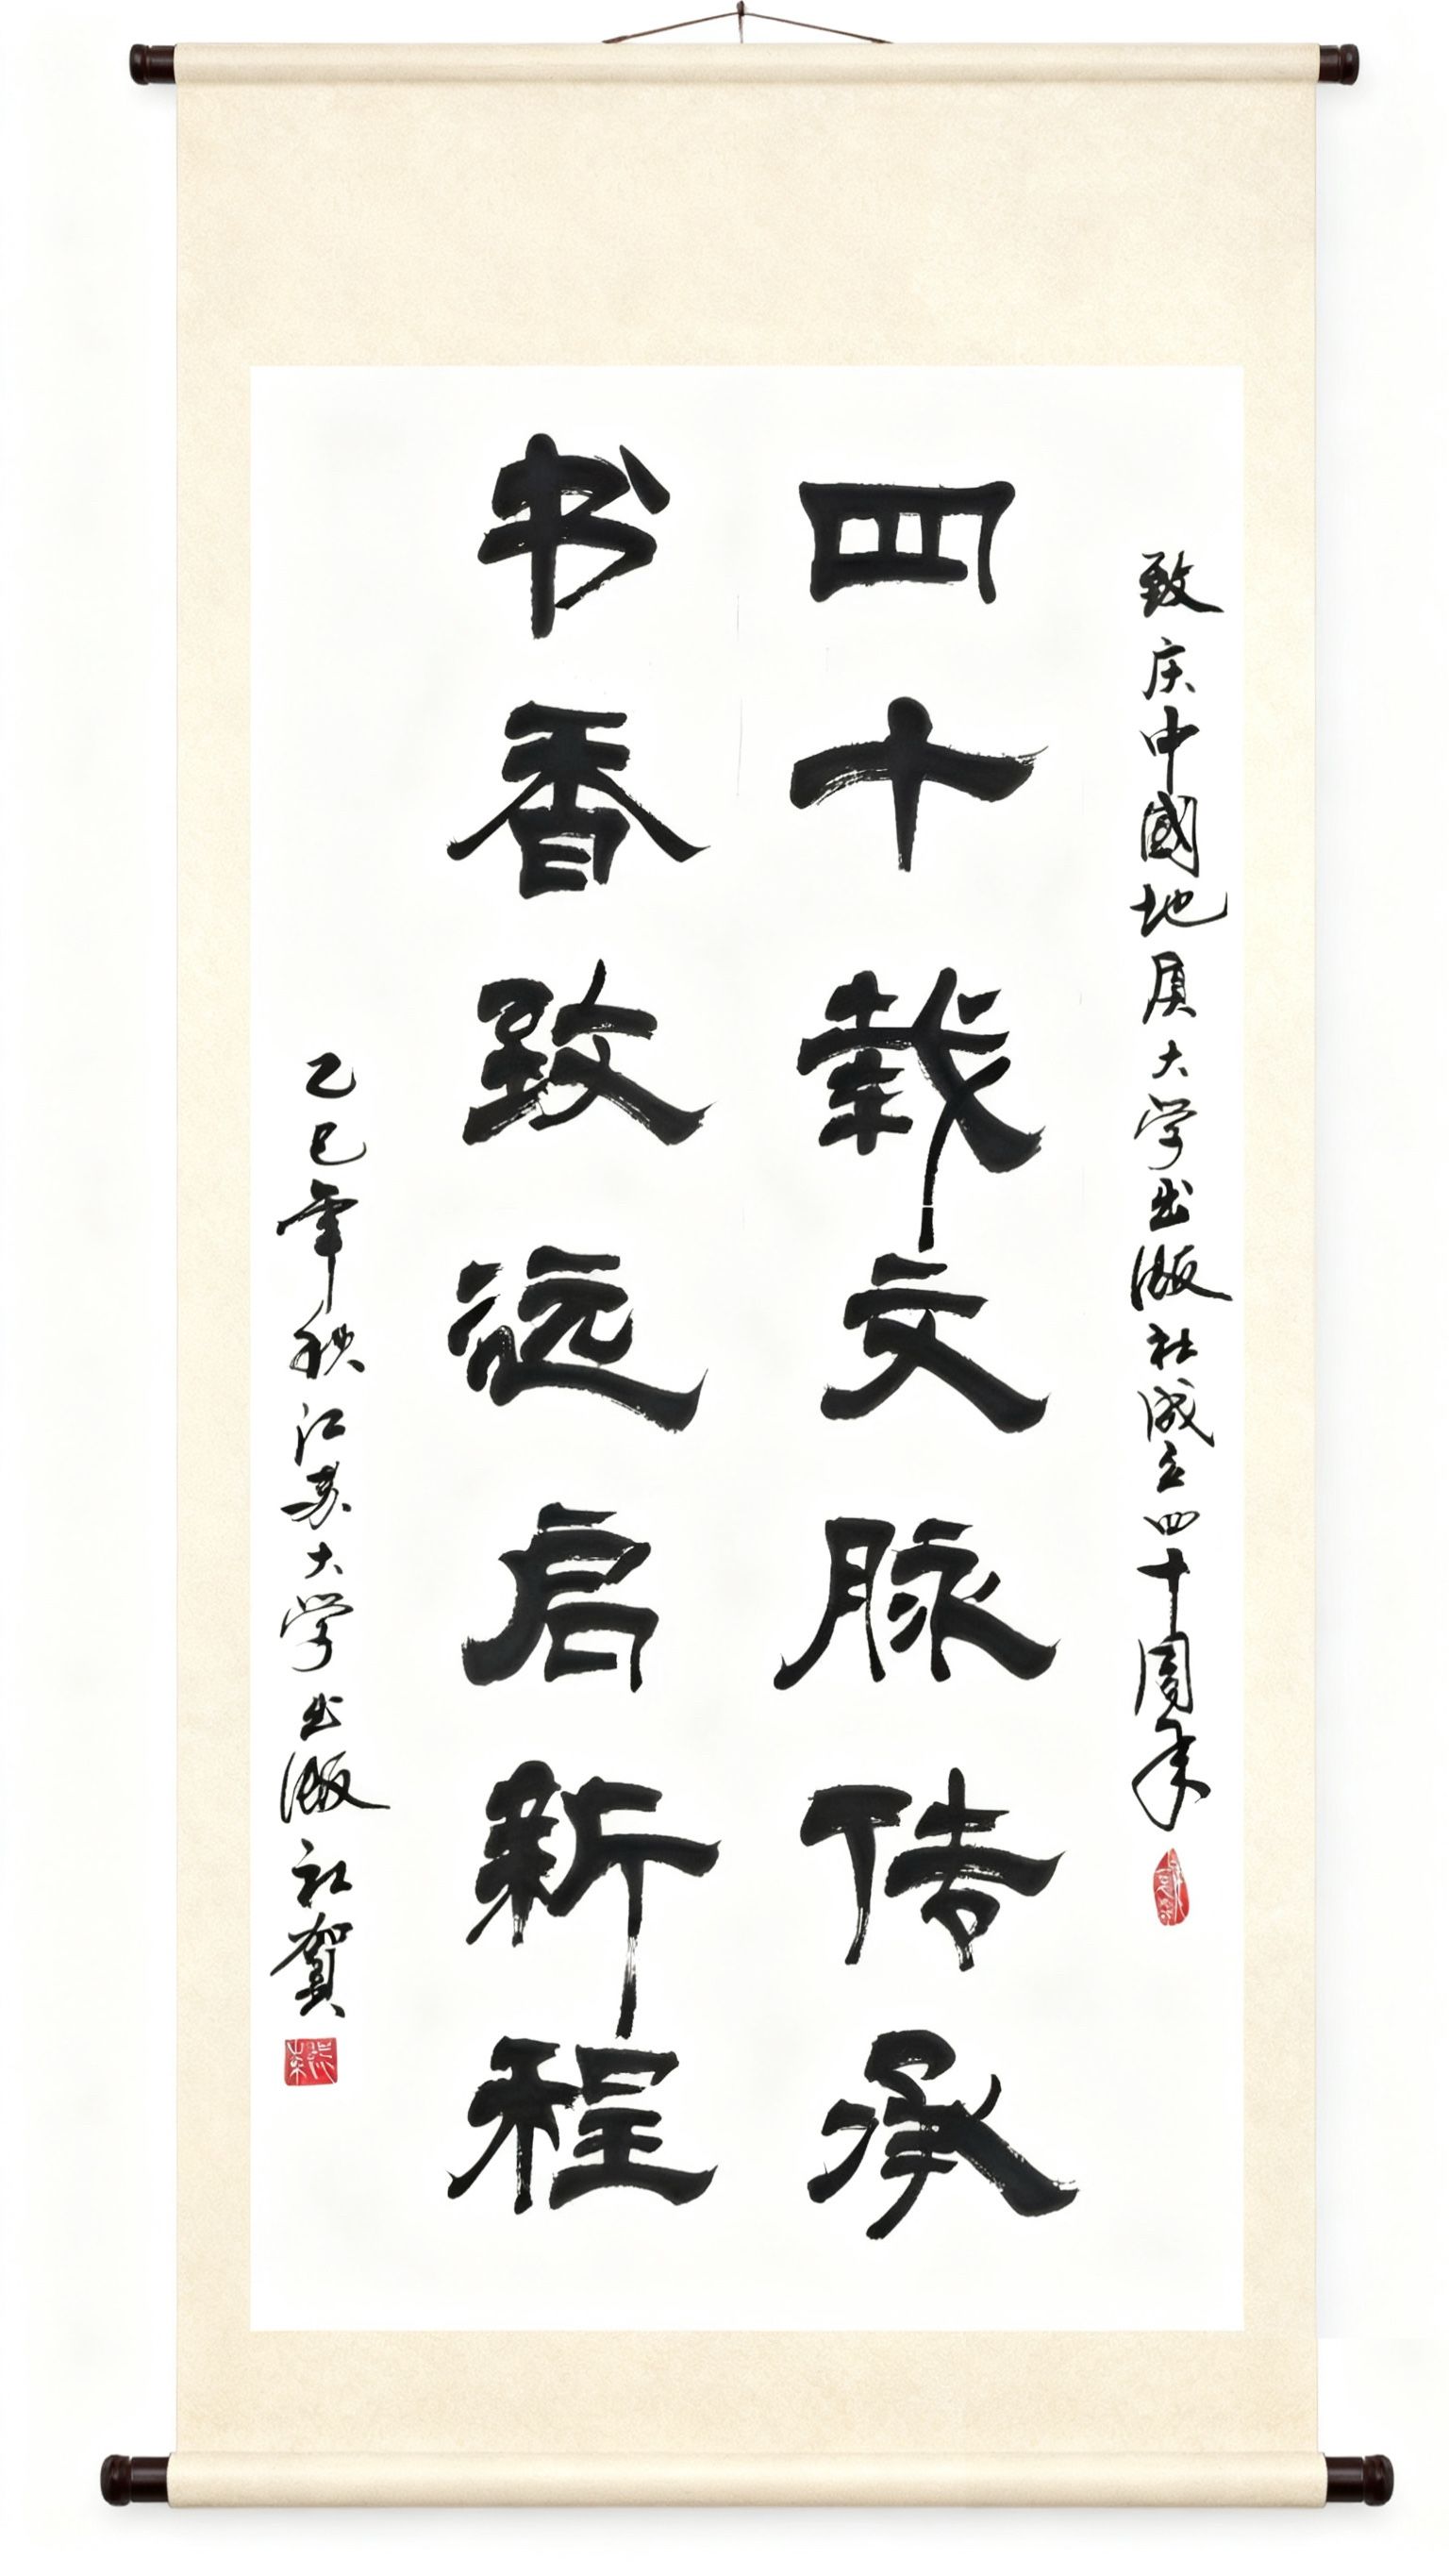 致庆中國地质大学出版社成立四十周年
四十载文脉传承
书香致远启新程
乙巳年秋江苏大学出版社贺